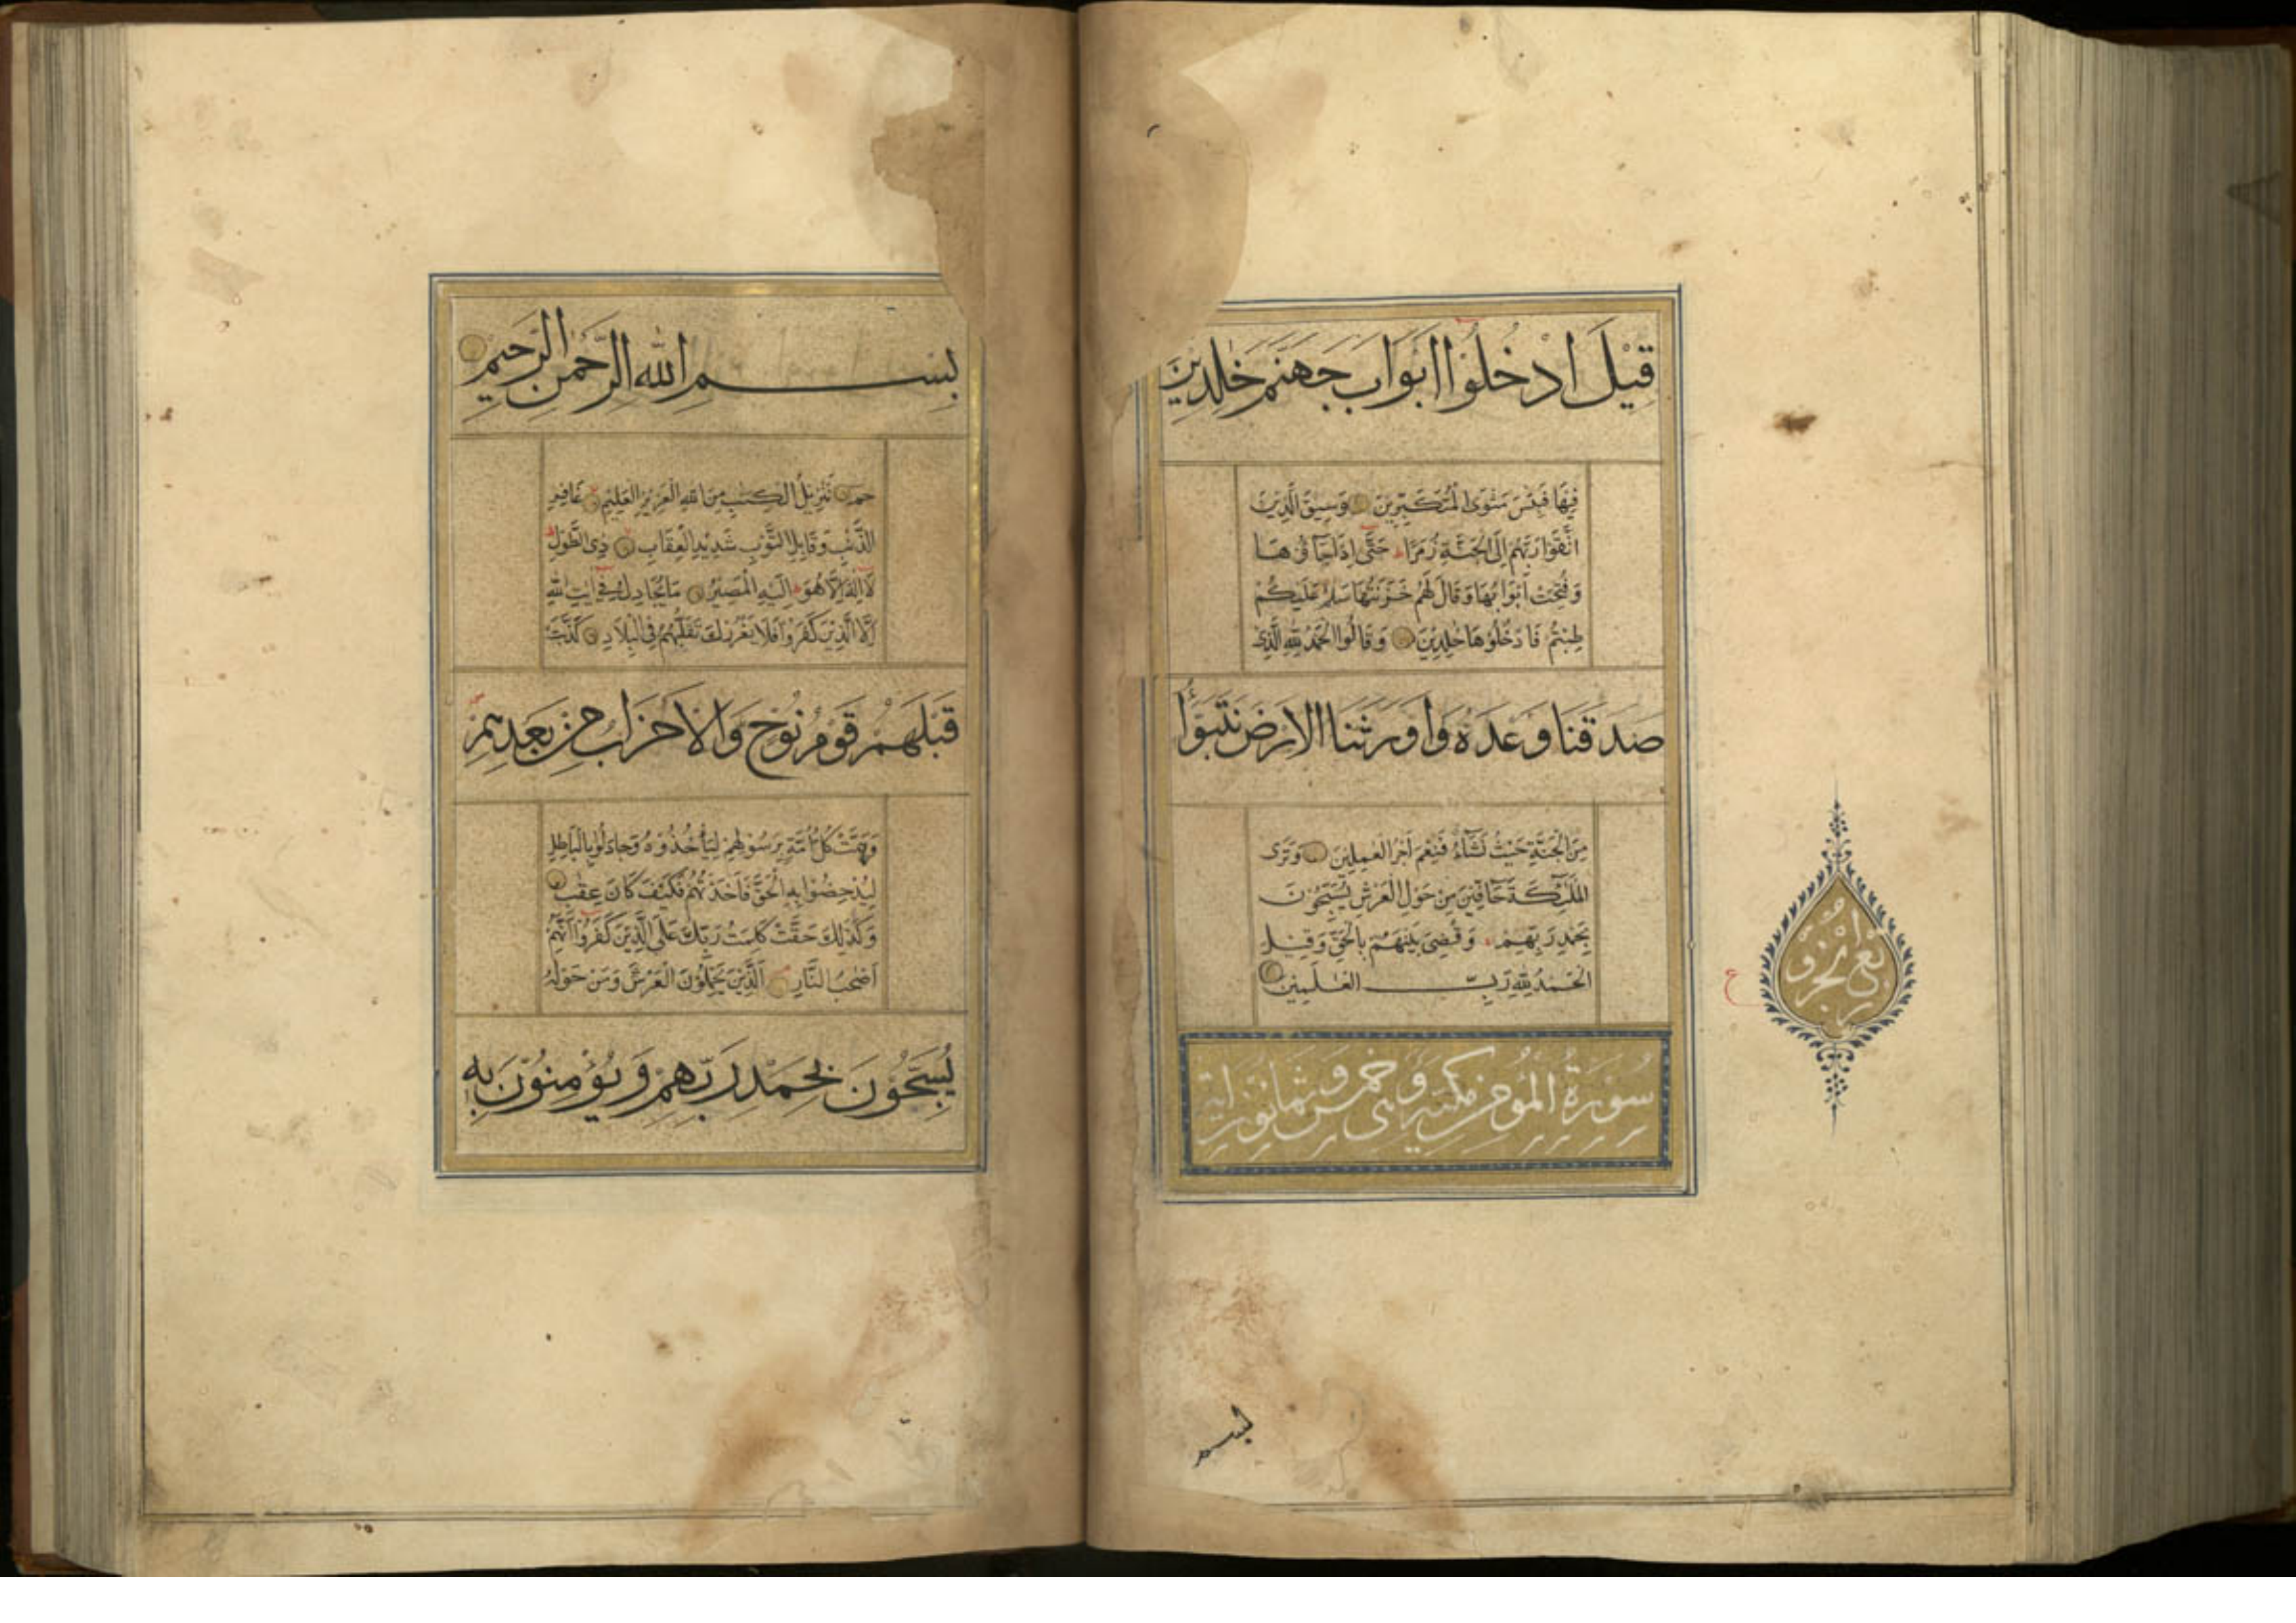 قِيلَ ادْخُلُوا أَبْوَابَ جَهَنَّمَ خَالِدِينَ
فِيهَا فَبِئْسَ مَثْوَى الْمُتَكَبِّرِينَ وَسِيقَ الَّذِينَ
اتَّقَوْا رَبَّهُمْ إِلَى الْجَنَّةِ زُمَرًا ط حَتَّى إِذَا جَاءُوهَا
وَفُتِحَتْ أَبْوَابُهَا وَقَالَ لَهُمْ خَزَنَتُهَا سَلٰمٌ عَلَيْكُمْ
طِبْتُمْ فَادْخُلُوهَا خٰلِدِينَ وَقَالُوا الْحَمْدُ لِلّٰهِ الَّذِي
صَدَقَنَا وَعْدَهُ وَأَوْرَثَنَا الْأَرْضَ نَتَبَوَّأُ
مِنَ الْجَنَّةِ حَيْثُ نَشَاءُ فَنِعْمَ أَجْرُ الْعٰمِلِينَ وَتَرَى
الْمَلٰئِكَةَ حَافِّينَ مِنْ حَوْلِ الْعَرْشِ يُسَبِّحُونَ
بِحَمْدِ رَبِّهِمْ وَقُضِيَ بَيْنَهُمْ بِالْحَقِّ وَقِيلَ
الْحَمْدُ لِلّٰهِ رَبِّ الْعٰلَمِينَ
سُورَةُ الْمُؤْمِنِ مَكِّيَّة وَهِيَ خَمْسٌ وَثَمَانُونَ اٰيَة
ع
رُبْعُ الْجُزْو
لبسم
بِسْمِ اللّٰهِ الرَّحْمٰنِ الرَّحِيمِ
حٰمٓ تَنْزِيلُ الْكِتٰبِ مِنَ اللّٰهِ الْعَزِيزِ الْعَلِيمِ غَافِرِ
الذَّنْبِ وَقَابِلِ التَّوْبِ شَدِيدِ الْعِقَابِ ذِي الطَّوْلِ ط
لَا إِلٰهَ إِلَّا هُوَ ط إِلَيْهِ الْمَصِيرُ مَا يُجَادِلُ فِي اٰيٰتِ اللّٰهِ
إِلَّا الَّذِينَ كَفَرُوا فَلَا يَغْرُرْكَ تَقَلُّبُهُمْ فِي الْبِلَادِ كَذَّبَتْ
قَبْلَهُمْ قَوْمُ نُوحٍ وَالْأَحْزَابُ مِنْ بَعْدِهِمْ
وَهَمَّتْ كُلُّ أُمَّةٍ بِرَسُولِهِمْ لِيَأْخُذُوهُ وَجَادَلُوا بِالْبَاطِلِ
لِيُدْحِضُوا بِهِ الْحَقَّ فَأَخَذْتُهُمْ فَكَيْفَ كَانَ عِقَابِ
وَكَذٰلِكَ حَقَّتْ كَلِمَتُ رَبِّكَ عَلَى الَّذِينَ كَفَرُوا أَنَّهُمْ
أَصْحٰبُ النَّارِ الَّذِينَ يَحْمِلُونَ الْعَرْشَ وَمَنْ حَوْلَهُ
يُسَبِّحُونَ بِحَمْدِ رَبِّهِمْ وَيُؤْمِنُونَ بِهِ